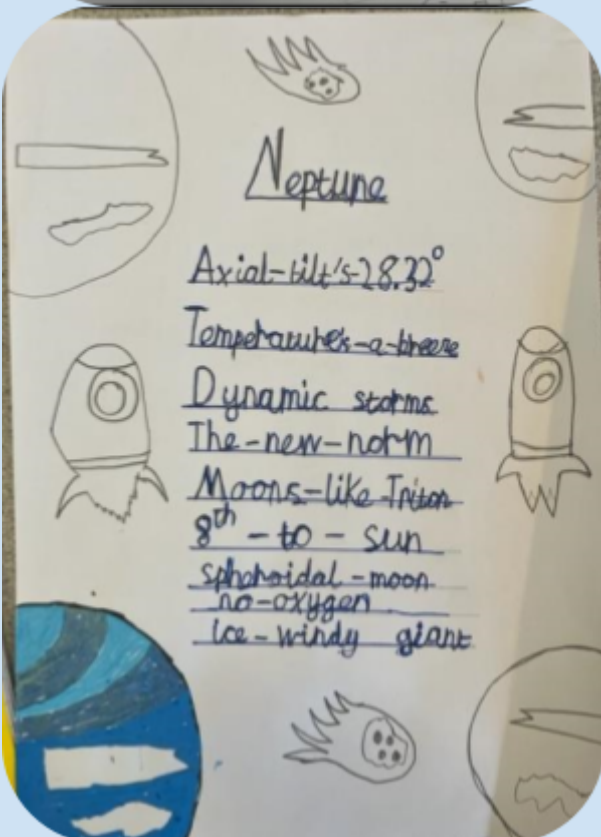 Neptune
Axial-tilt's-28.32°
Temperature's-a-breeze
Dynamic storms
The-new-norm
Moons-like-Triton
8th-to-sun
spheroidal-moon
no-oxygen
ice-windy giant